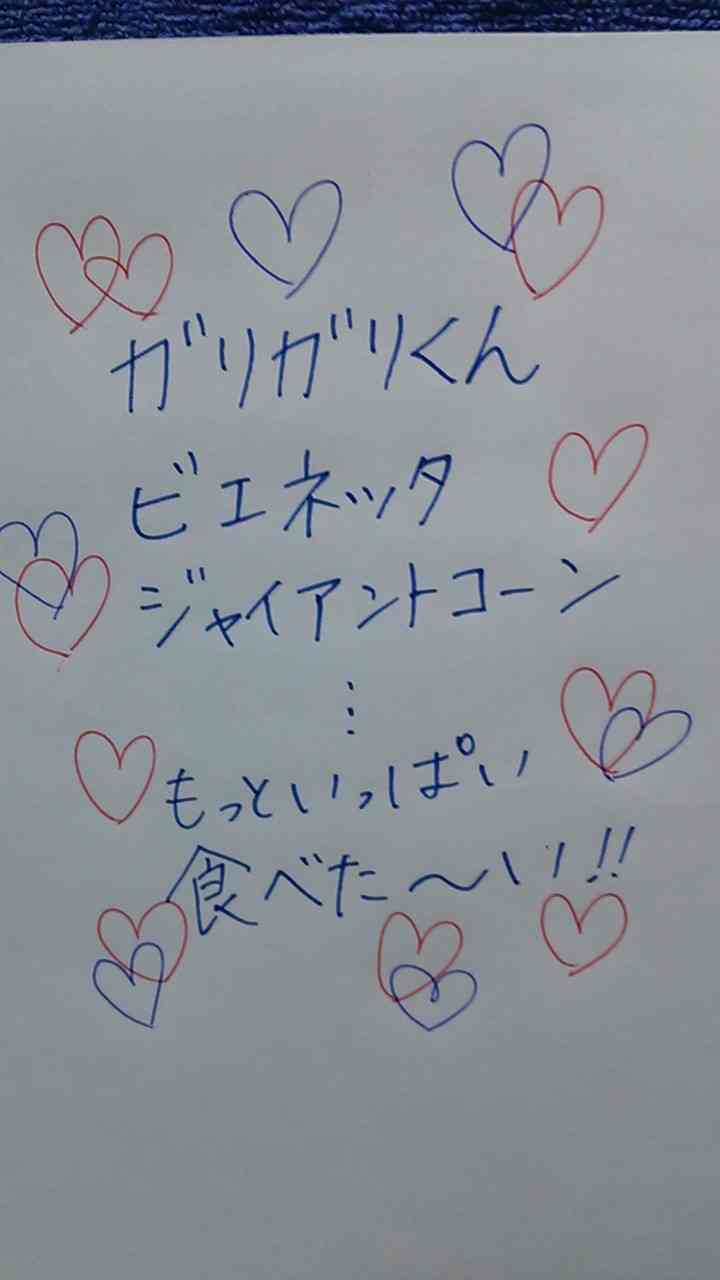 ガリガリくん
ビエネッタ
ジャイアントコーン
⋮
もっといっぱい
食べた〜い!!